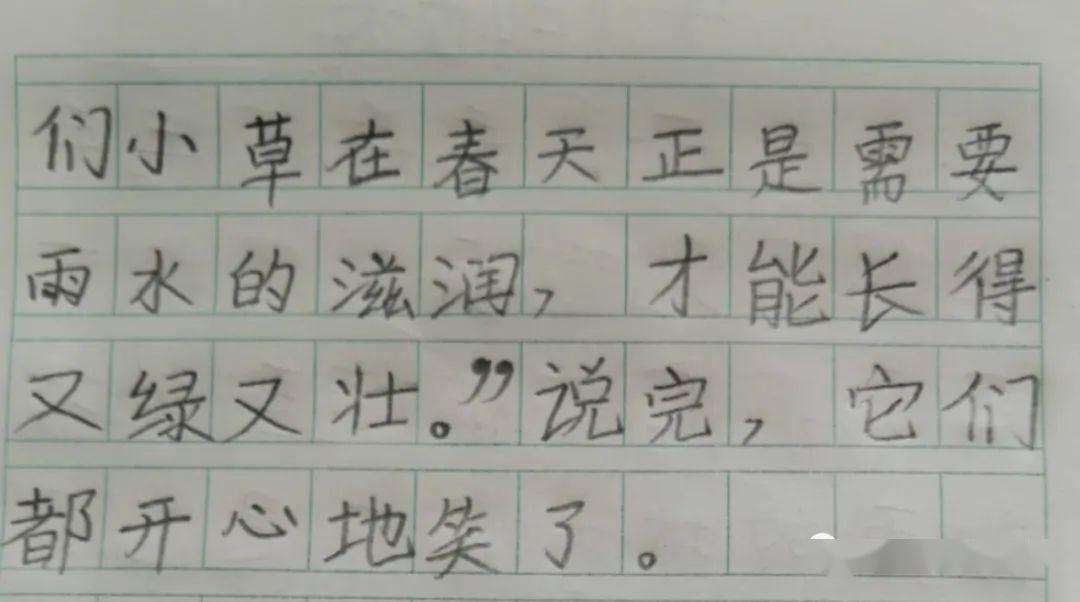 们小草在春天正是需要
雨水的滋润，才能长得
又绿又壮。”说完，它们
都开心地笑了。